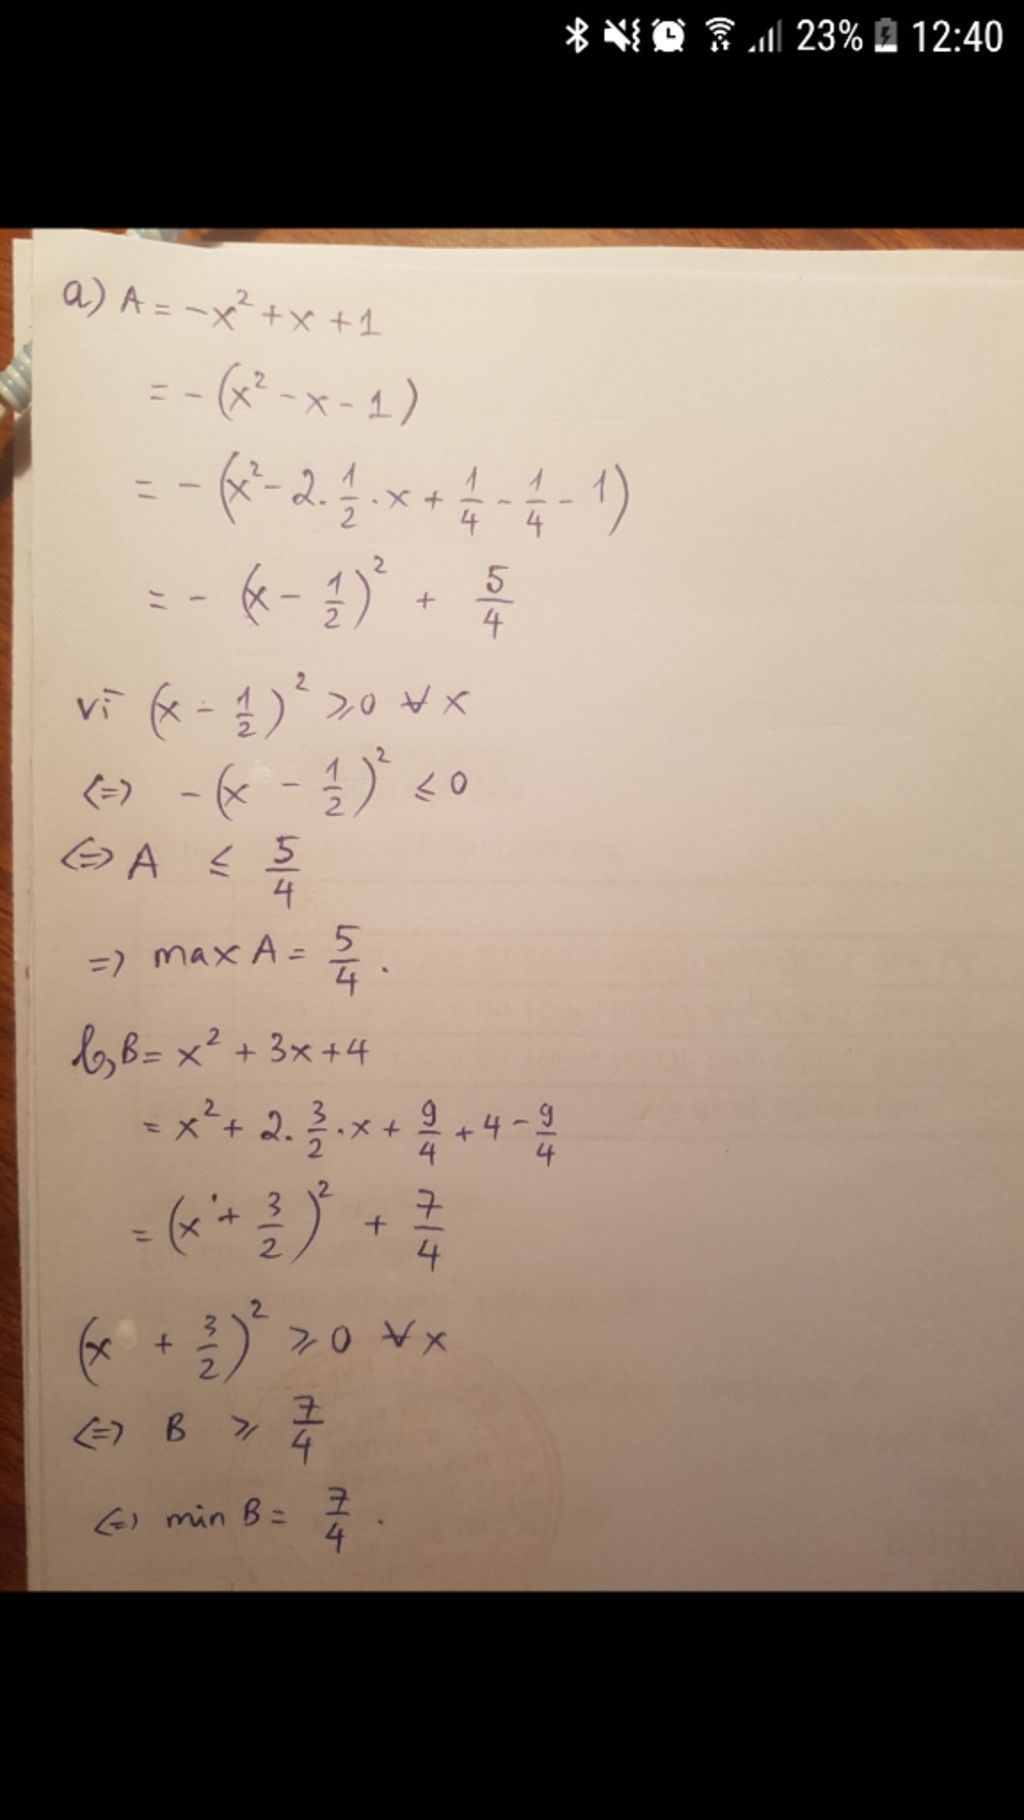 23% 12:40
a) A = -x² + x + 1
= - (x² - x - 1)
= - (x² - 2. 1/2 . x + 1/4 - 1/4 - 1)
= - (x - 1/2)² + 5/4
vì (x - 1/2)² ≥ 0 ∀ x
<=> - (x - 1/2)² ≤ 0
<=> A ≤ 5/4
=> max A = 5/4 .
b, B = x² + 3x + 4
= x² + 2. 3/2 . x + 9/4 + 4 - 9/4
= (x + 3/2)² + 7/4
(x + 3/2)² ≥ 0 ∀ x
<=> B ≥ 7/4
<=> min B = 7/4 .